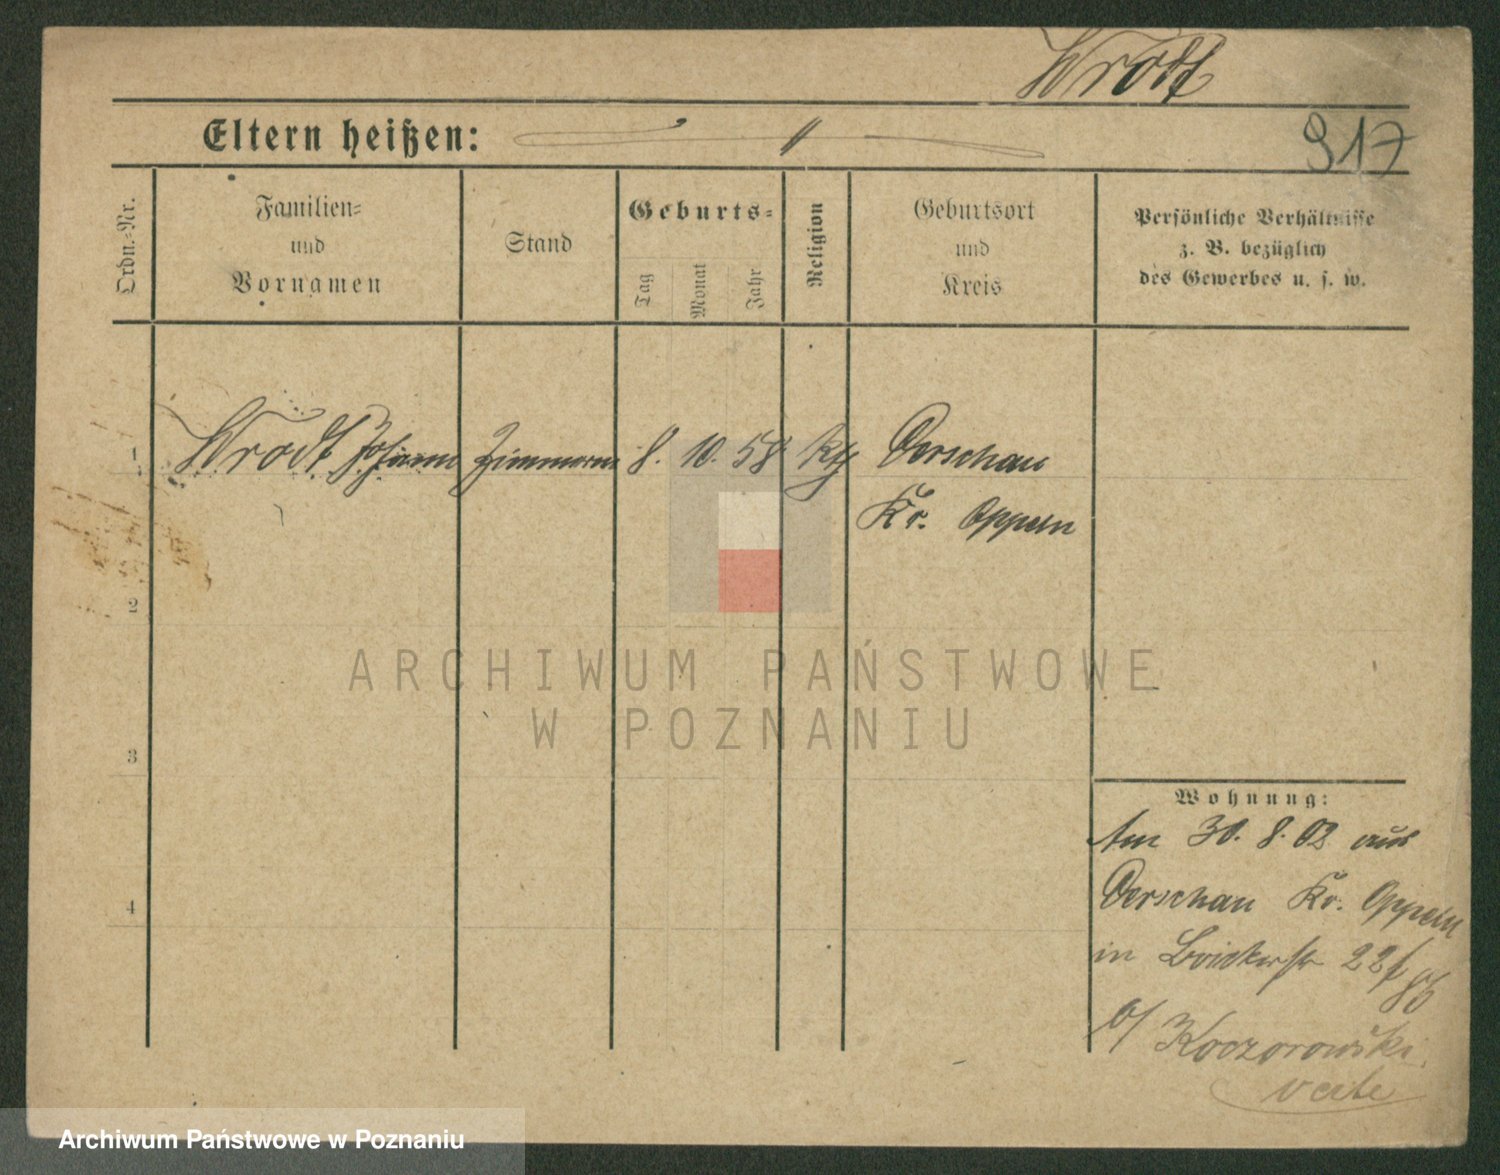 Wrodt
Eltern heißen:
917
Ordn.-Nr.
Familien-
und
Vornamen
Stand
Geburts-
Tag
Monat
Jahr
Religion
Geburtsort
und
Kreis
Persönliche Verhältnisse
z. B. bezüglich
des Gewerbes u. s. w.
1 Wrodt Johann Zimmerm 8. 10. 58 kth Derschau
Kr. Oppeln
2
ARCHIWUM PAŃSTWOWE
W POZNANIU
3
Wohnung:
Am 30. 8. 02 aus
Derschau Kr. Oppeln
4
in 22
b/ Koczorowski
Archiwum Państwowe w Poznaniu